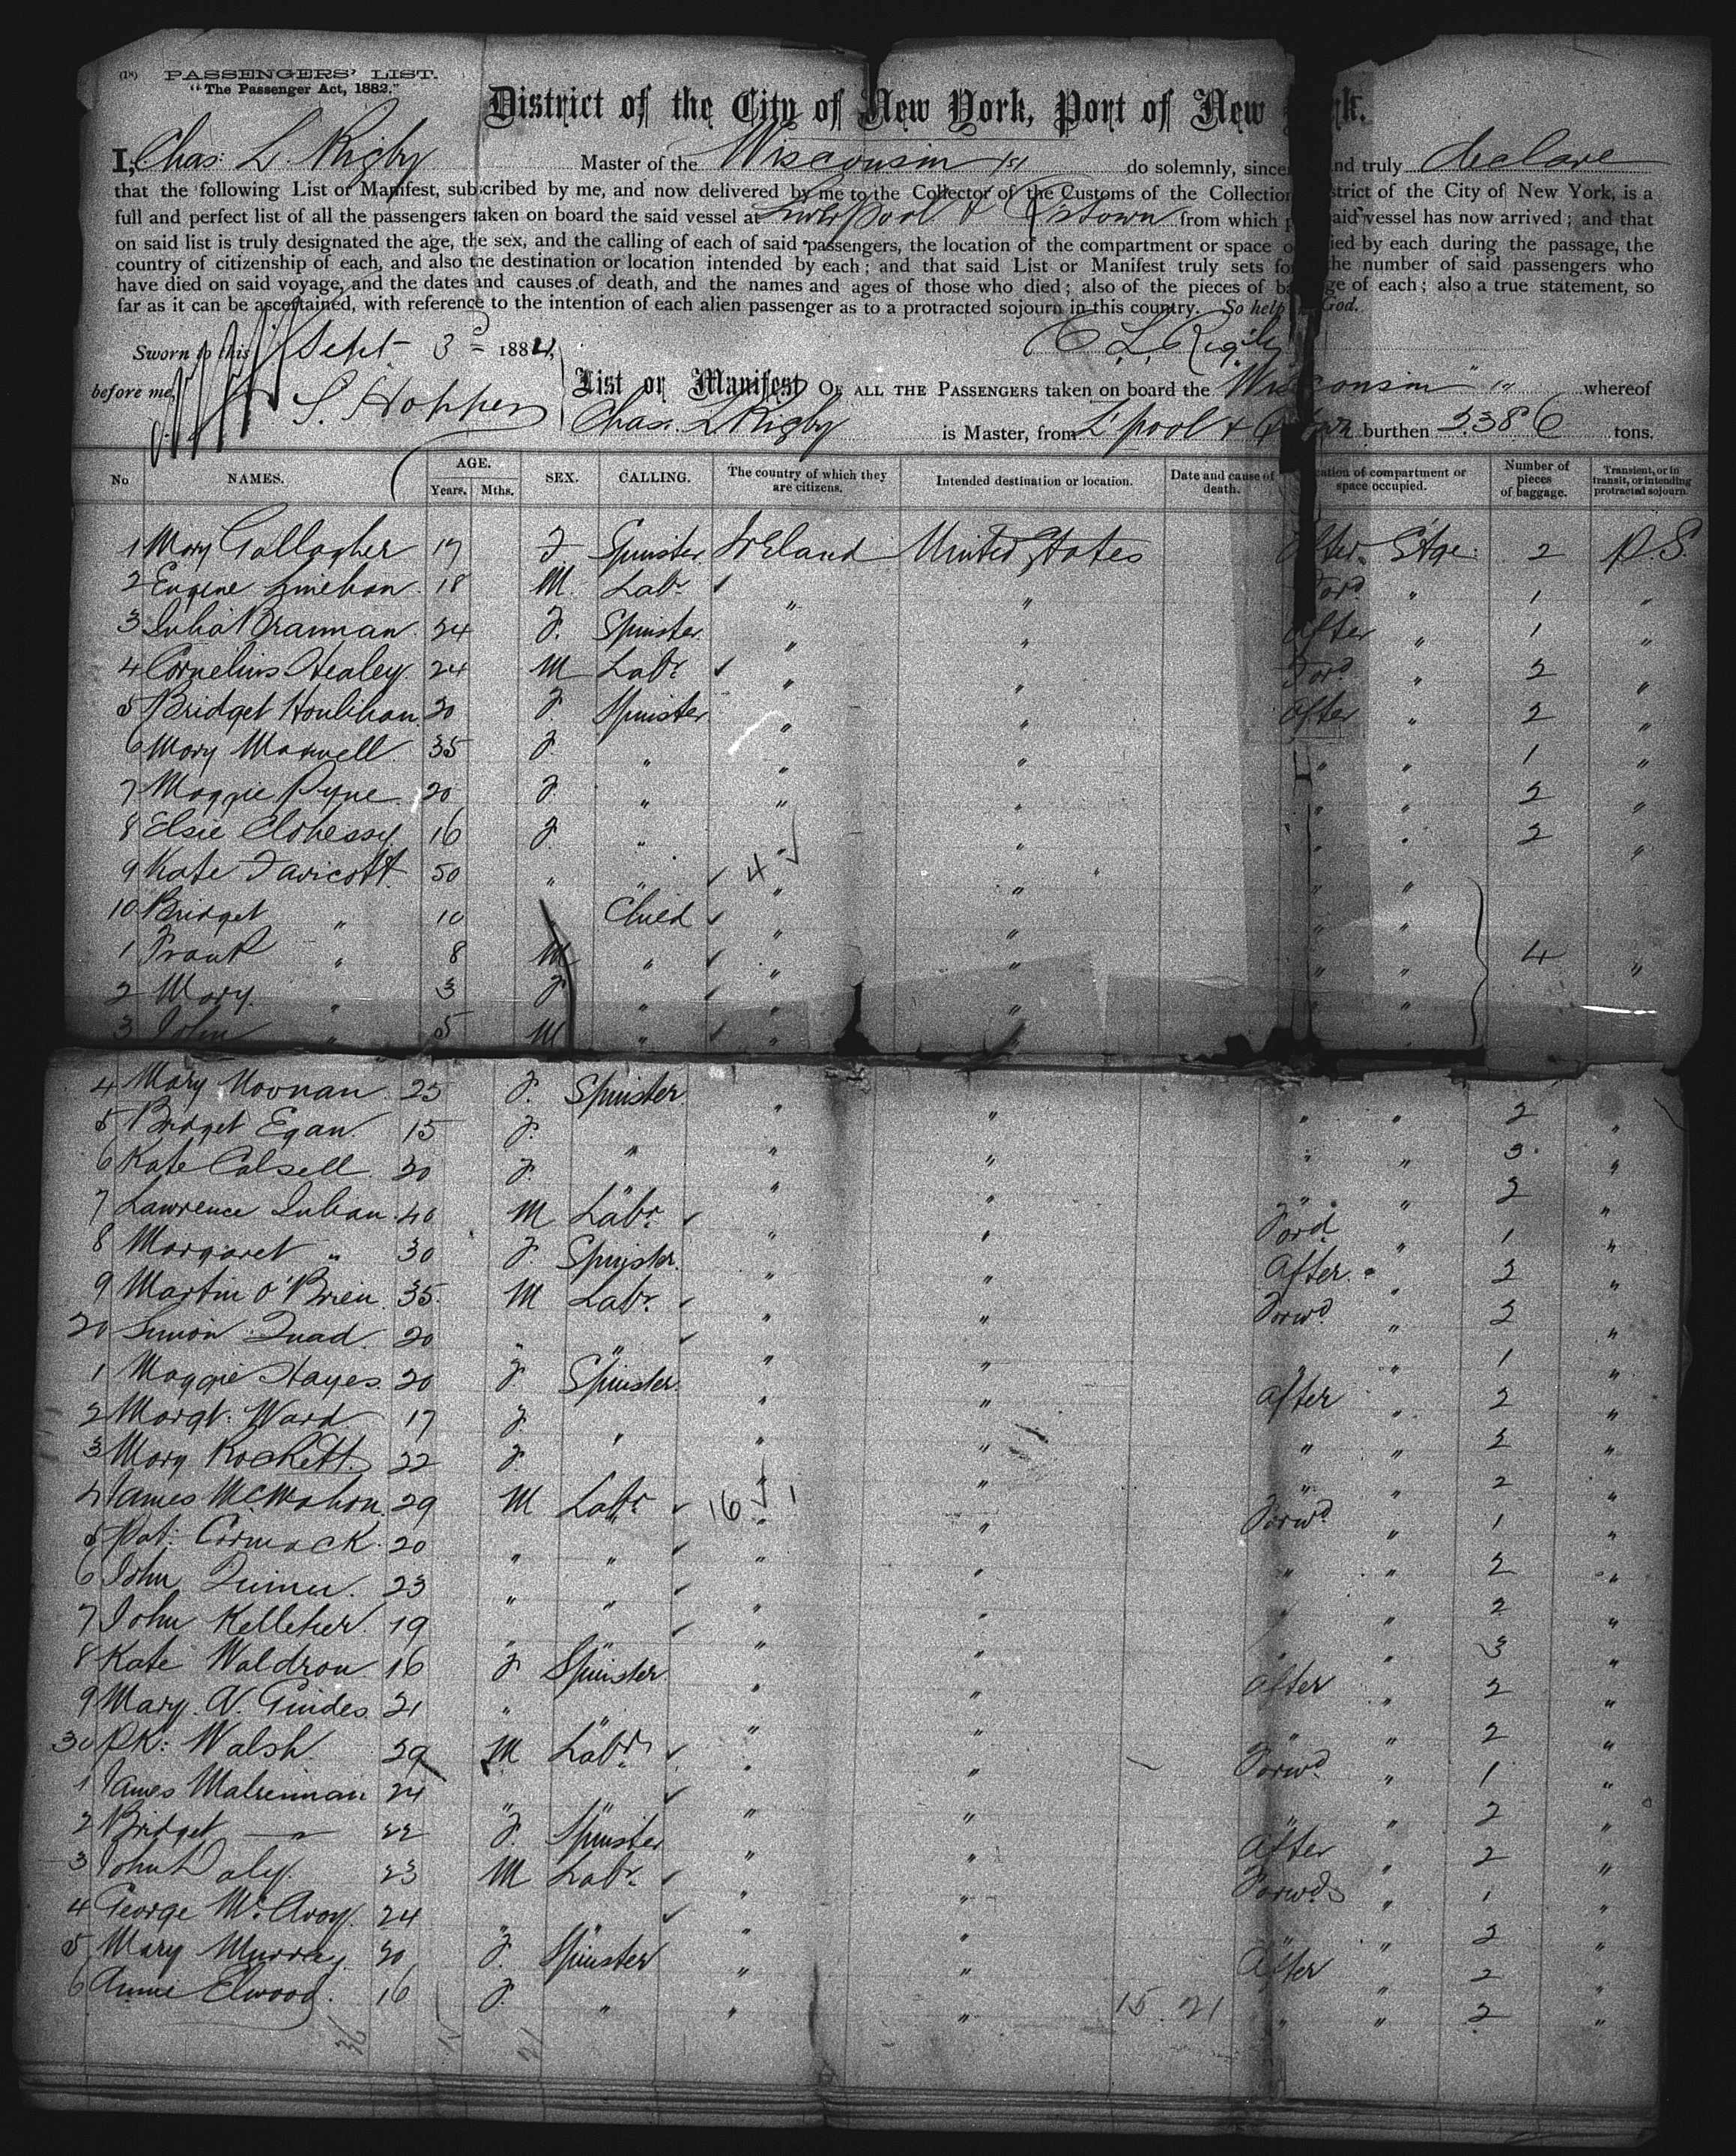 (18) PASSENGERS' LIST.
"The Passenger Act, 1882."
District of the City of New York, Port of New
I, Chas: L. Rigby Master of the Wisconsin do solemnly, since nd truly declare
that the following List or Manifest, subscribed by me, and now delivered by me to the Collector of the Customs of the Collection strict of the City of New York, is a
full and perfect list of all the passengers taken on board the said vessel at Liverpool & Qstown from which p aid vessel has now arrived; and that
on said list is truly designated the age, the sex, and the calling of each of said passengers, the location of the compartment or space o ied by each during the passage, the
country of citizenship of each, and also the destination or location intended by each; and that said List or Manifest truly sets fo the number of said passengers who
have died on said voyage, and the dates and causes of death, and the names and ages of those who died; also of the pieces of ba ge of each; also a true statement, so
far as it can be ascertained, with reference to the intention of each alien passenger as to a protracted sojourn in this country. So help God.
Sworn to this Sept 3d 1884, C L Rigby
before me, S. Hopper
List or Manifest OF ALL THE PASSENGERS taken on board the "Wisconsin" whereof
Chas. L Rigby is Master, from L'pool & Qtown burthen 2386 tons.
No NAMES. AGE. Years. Mths. SEX. CALLING. The country of which they are citizens. Intended destination or location. Date and cause of death. cation of compartment or space occupied. Number of pieces of baggage. Transient, or in transit, or intending protracted sojourn.
1 Mary Gallagher 17 F Spinster Ireland United States After Stge: 2 P.S.
2 Eugene Linehan 18 M. Labr ✓ " " Ford " 1 "
3 Julia Brannan 24 F. Spinster " " After " 1 "
4 Cornelius Healey 24 M Labr ✓ " " Ford " 2 "
5 Bridget Houlihan 20 F. Spinster " " After " 2 "
6 Mary Maxwell 35 F. " " " " " 1 "
7 Maggie Pyne 20 F. " " " " " 2 "
8 Elsie Clohessy 16 F. " " " " " 2 "
9 Kate 50 " " ✓ 4 ✓ " " " "
10 Bridget " 10 " Child ✓ " " " "
1 Frank " 8 M " ✓ " " " " 4 "
2 Mary " 3 F " ✓ " " " "
3 John " 5 M " ✓ "
4 Mary Noonan 25 F. Spinster " " " " 2 "
5 Bridget Egan 15 F. " " " " " 3 "
6 Kate Calsell 20 F. " " " " " 2 "
7 Lawrence Julian 40 M Labr ✓ " " Ford " 1 "
8 Margaret " 30 F. Spinster " " After " 2 "
9 Martin O'Brien 35 M Labr ✓ " " Forwd " 2 "
20 Simon Quad 20 " " ✓ " " " " 1 "
1 Maggie Hayes 20 F. Spinster " " After " 2 "
2 Margt: Ward 17 F. " " " " " 2 "
3 Mary Rockett 22 F. " " " " " 2 "
4 James McMahon 29 M Labr ✓ 16 ✓ 1 " " Forwd " 1 "
5 Pat: Cormack 20 " " ✓ " " " " 2 "
6 John 23 " " ✓ " " " " 2 "
7 John Kelleher 19 " " ✓ " " " " 3 "
8 Kate Waldron 16 F Spinster " " After " 2 "
9 Mary 21 " " " " " " 2 "
30 Pk: Walsh 29 M Labr ✓ " " Forwd " 1 "
1 James 24 " " ✓ " " " " 2 "
2 Bridget — " 22 F. Spinster " " After " 2 "
3 John Daly 23 M Labr ✓ " " Forwd " 1 "
4 George McAvoy 24 " " ✓ " " " " 2 "
5 Mary Murray 20 F. Spinster " " After " 2 "
6 Annie Elwood 16 F. " " " 15 21 " " 2 "
36 15 21